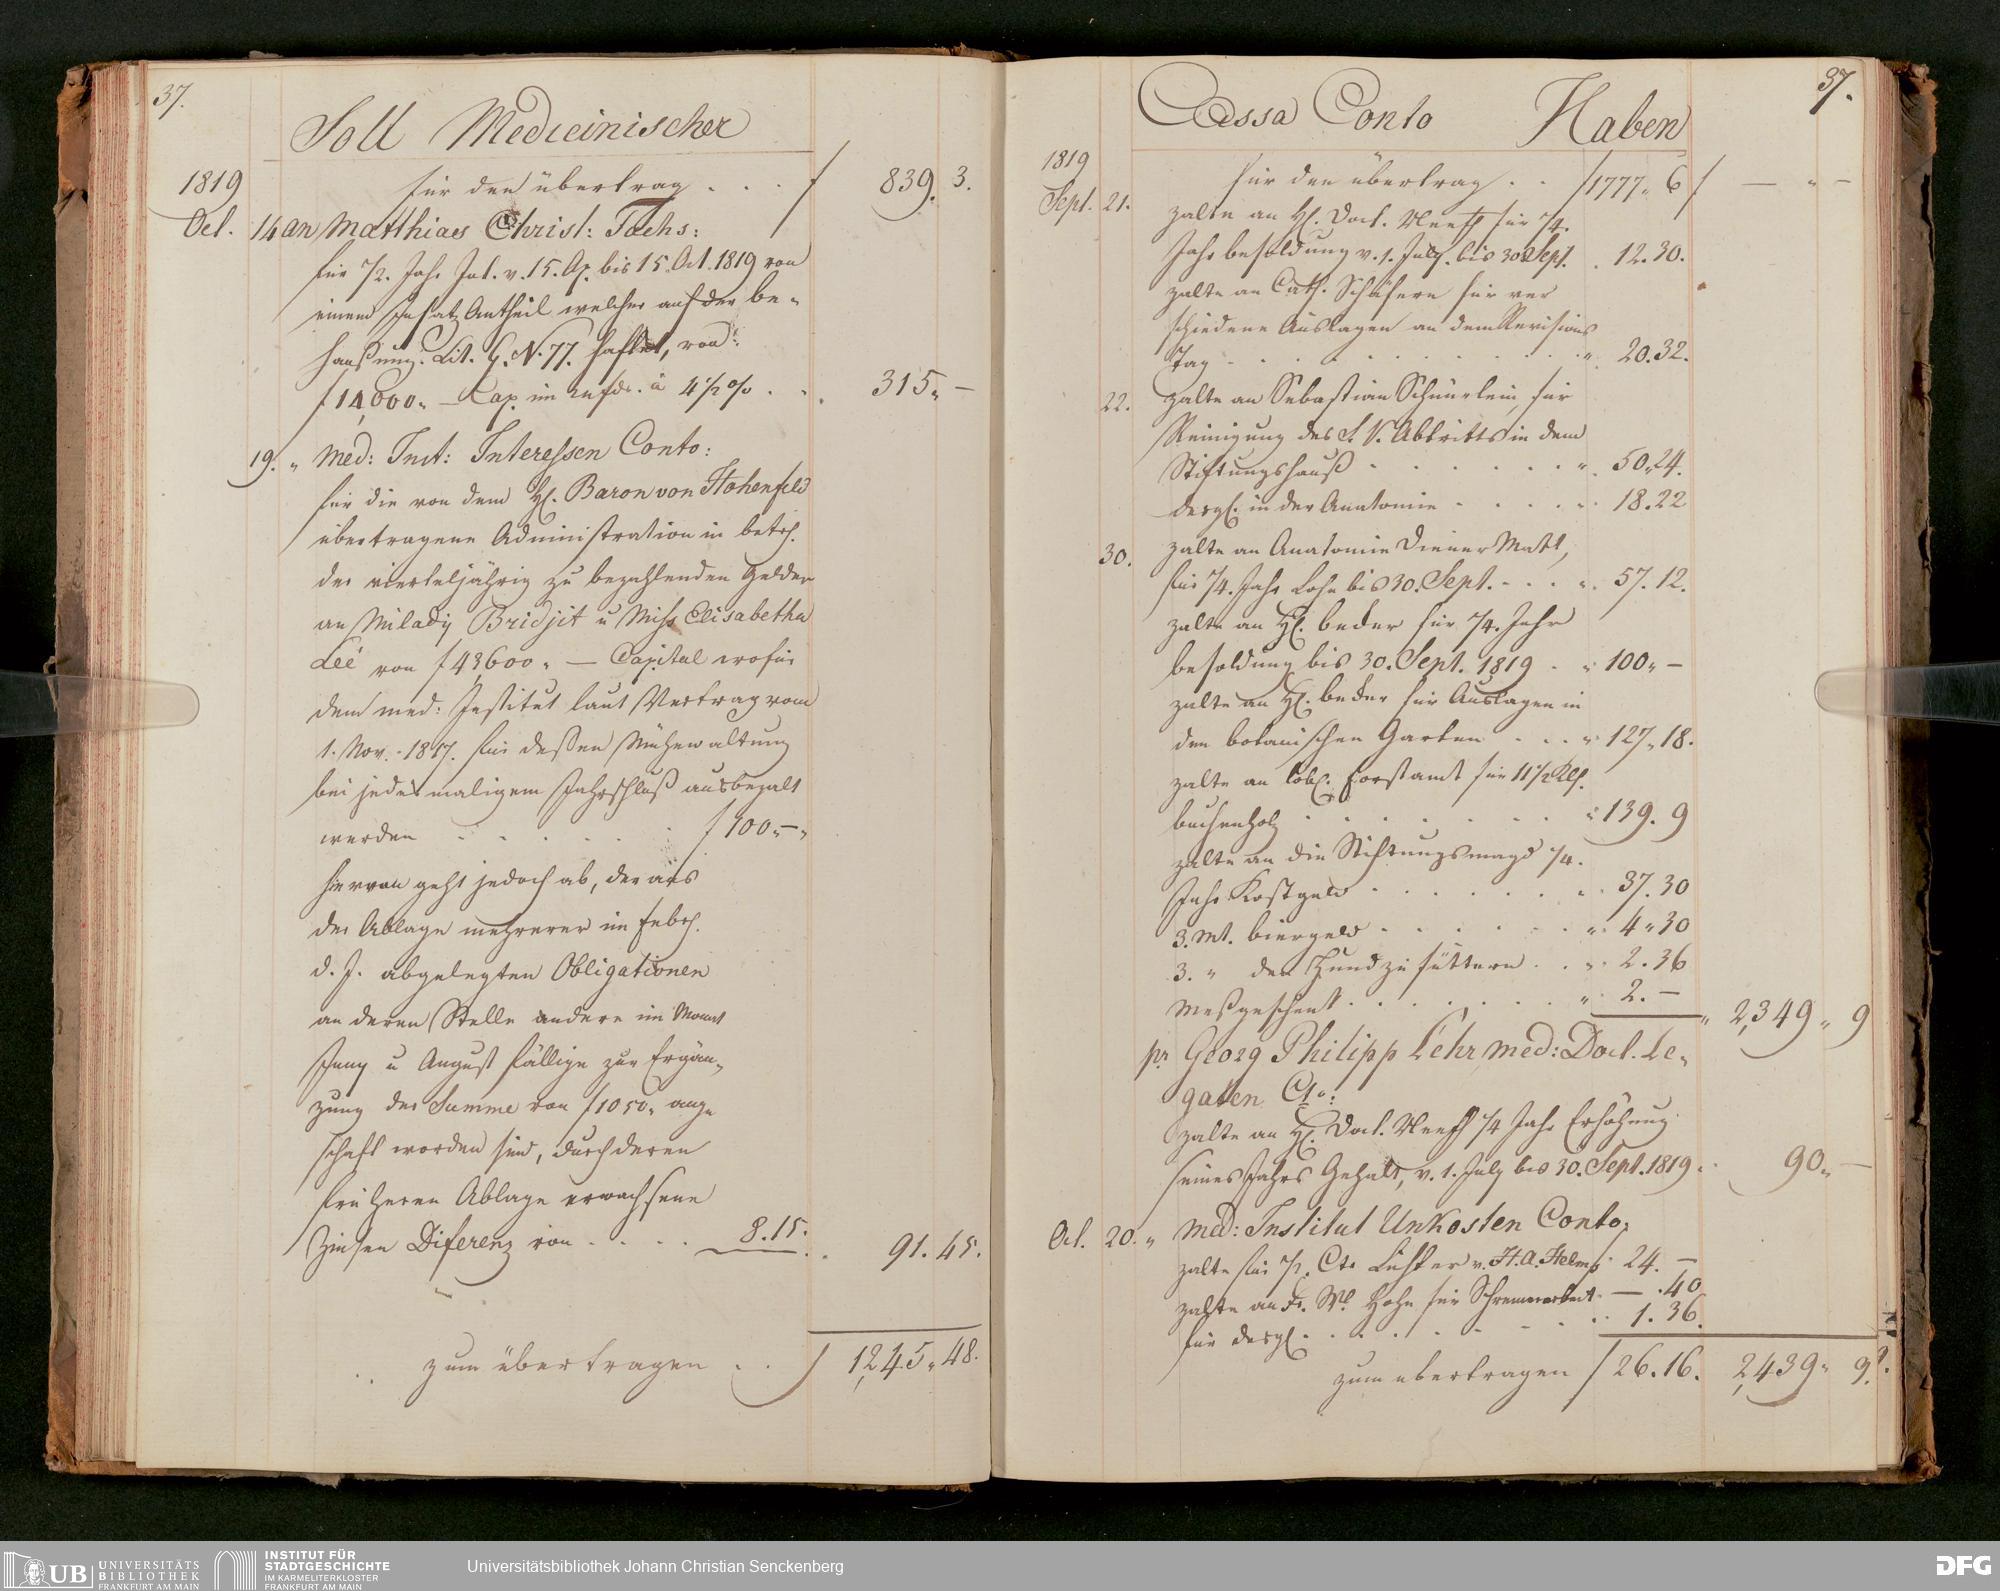 37.
Soll Medicinischer
1819
für den übertrag . . . f 839. 3.
Oct. 14 an Matthiaes Christ: Fachs:
für ½. Jahr Int. v. 15. Ap. bis 15 Oct. 1819 von
einem Insatz Antheil welcher auf der be-
haußung: Lit. G. N. 77. haftet, von:
f 14,000. — Cap. im Insatz. à 4½ % . . . 315. —
19. " Med: Inst: Interessen Conto:
für die von dem H. Baron von Hohenfeld
übertragene Administration in betr.
der vierteljährig zu bezahlenden Gelder
an Milady Bridjit u Miss Elisabetha
Leé von f 43,600. — Capital wofür
dem med: Institut laut Vertrag vom
1. Nov. 1817. für deßen Mühewaltung
bei jedesmaligem Jahrschluß ausbezalt
werden . . . . . . f 100. —
hiervon geht jedoch ab, der aus
der Ablage mehrerer im Febr.
d. J. abgelegten Obligationen
an deren Stelle andere im Monat
Juny u August fällige zur Ergän-
zung der Summe von f 1050. ange
schaft worden sind, durch deren
früheren Ablage erwachsene
Zinsen Diferenz von . . . . 8.15. . 91. 45.
zum übertragen . . f 1,245. 48.
37.
Cassa Conto Haben
1819
für den übertrag . . f 1777. 6 f — " —
Sept. 21. zalte an H. Doct. Neeff für ¼.
Jahr besoldung v. 1. July. bis 30 Sept. . 12. 30.
zalte an Cath. Schäfern für ver
schiedene Auslagen an dem Revisions
Tag . . . . . . . " 20. 32.
22. zalte an Sebastian Schnürlein, für
Reinigung des S. V. Abtritts in dem
Stiftungshauß . . . . . . " 50. 24.
desgl. in der Anatomie . . . . " 18. 22
30. zalte an Anatomie Diener Matt,
für ¼. Jahr Lohn bis 30. Sept. . . . " 57. 12.
zalte an H. beder für ¼. Jahr
besoldung bis 30. Sept. 1819 . " 100. —
zalte an H. beder für Auslagen in
den botanischen Garten . . . " 127. 18.
zalte an löbl. Forstamt für 11½ Klf.
buchenholz . . . . . . . " 139. 9
zalte an die Stiftungsmagd ¼.
Jahr Kostgeld . . . . . . " 37. 30
3. Mt. biergeld . . . . . . " 4. 30
3. " den Hund zu füttern . . " 2. 36
Meßgeschenk . . . . . . " 2. — " 2,349. 9
pr Georg Philipp Lehr med: Doct. Le-
gaten Cto:
zalte an H. Doct. Neeff ¼ Jahr Erhöhung
seines Jahrs Gehalt, v. 1. July bis 30. Sept. 1819 . . 90. —
Oct. 20. " Med: Institut Unkosten Conto,
zalte für Cto v. H. A. Helms . 24. —
zahlte an Fr. Wl. Hohn für Schreinerarbeit — . 40
für desgl. . . . . . . . 1. 36.
zum übertragen f 26. 16. 2,439. 9.
UB UNIVERSITÄTS
BIBLIOTHEK
FRANKFURT AM MAIN
INSTITUT FÜR
STADTGESCHICHTE
IM KARMELITERKLOSTER
FRANKFURT AM MAIN
Universitätsbibliothek Johann Christian Senckenberg
DFG